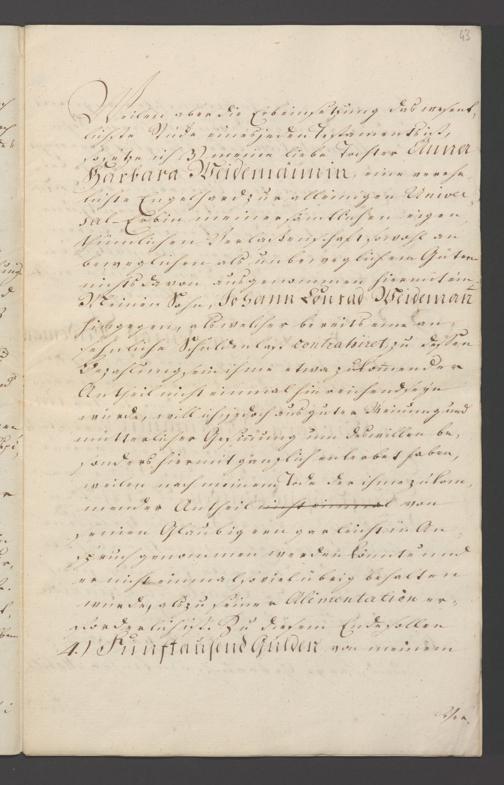 43
Weilen aber die Erbeinsetzung das wesent-
lichste Stück eines jeden Testaments ist,
so setze ich 3) meine liebe Tochter Anna
Barbara Weidemännin, eine verehe-
lichte Engelhard zur alleinigen Univer-
sal-Erbin meiner sämtlichen eigen-
thümlichen Verlassenschaft sowohl an
beweglichen als unbeweglichen Gütern
nichts davon ausgenommen hiermit ein.
Meinen Sohn, Johann Conrad Weidemañ
hingegen, als welcher bereits eine an-
sehnliche Schuldenlast contrahiret, zu dessen
Bezahlung, ein ihme etwa zukommender
Antheil nicht einmal hinreichend seyn
würde, will ich jedoch aus guter Meinung und
mütterlicher Gesinnung um deswillen be-
sonders hiermit gänzlich enterbet haben,
weilen nach meinem Tode der ihme zukom-
mender Antheil nicht einmal von
seinen Glaubigern gar leicht in An-
spruch genommen werden könnte und
er nicht einmal so viel übrig behalten
würde, als zu seiner Alimentation er-
forderlich ist. Zu diesem Ende sollen
4.) Fünftausend Gulden von meinem